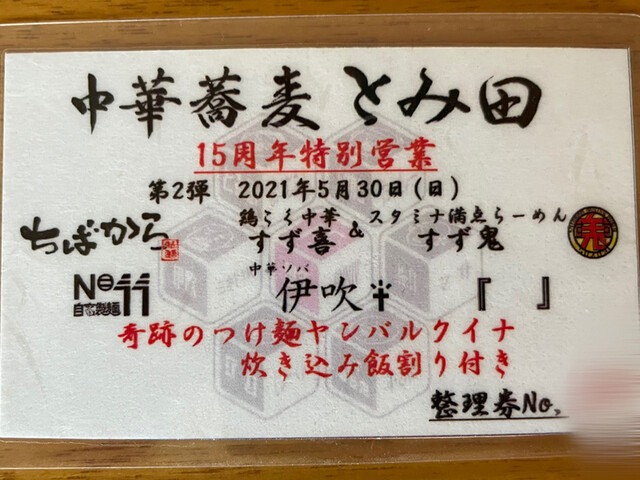 中華蕎麦とみ田
15周年特別営業
第2弾 2021年5月30日(日)
鶏こく中華 スタミナ満点らーめん
ちばから すず喜 & すず鬼
中華ソバ
No11 自家製麺 伊吹 『 』
奇跡のつけ麺ヤンバルクイナ
炊き込み飯割り付き
整理券No.